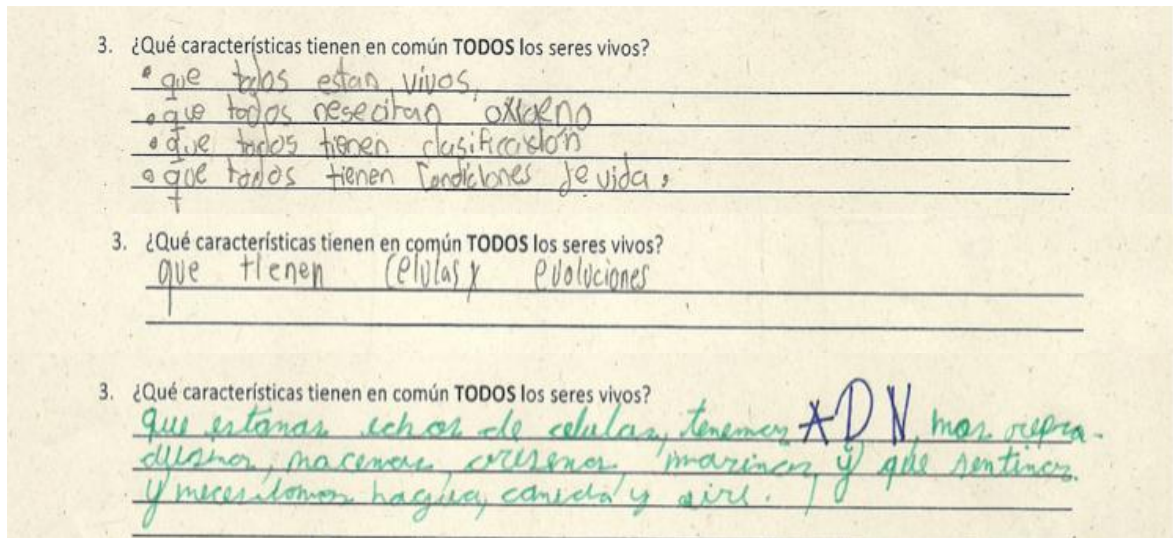 3. ¿Qué características tienen en común TODOS los seres vivos?
• que todos estan vivos,
• que todos nesecitan oxigeno
• que todos tienen clasificasión
• que todos tienen condiciones de vida.
3. ¿Qué características tienen en común TODOS los seres vivos?
que tienen celulas y evoluciones
3. ¿Qué características tienen en común TODOS los seres vivos?
que estanos echos de celulas, tenemos ADN, mos repro-
dusmos, nacemos, cresemos, morimos, y que sentimos
y necesitamos hagua, comida y aire.